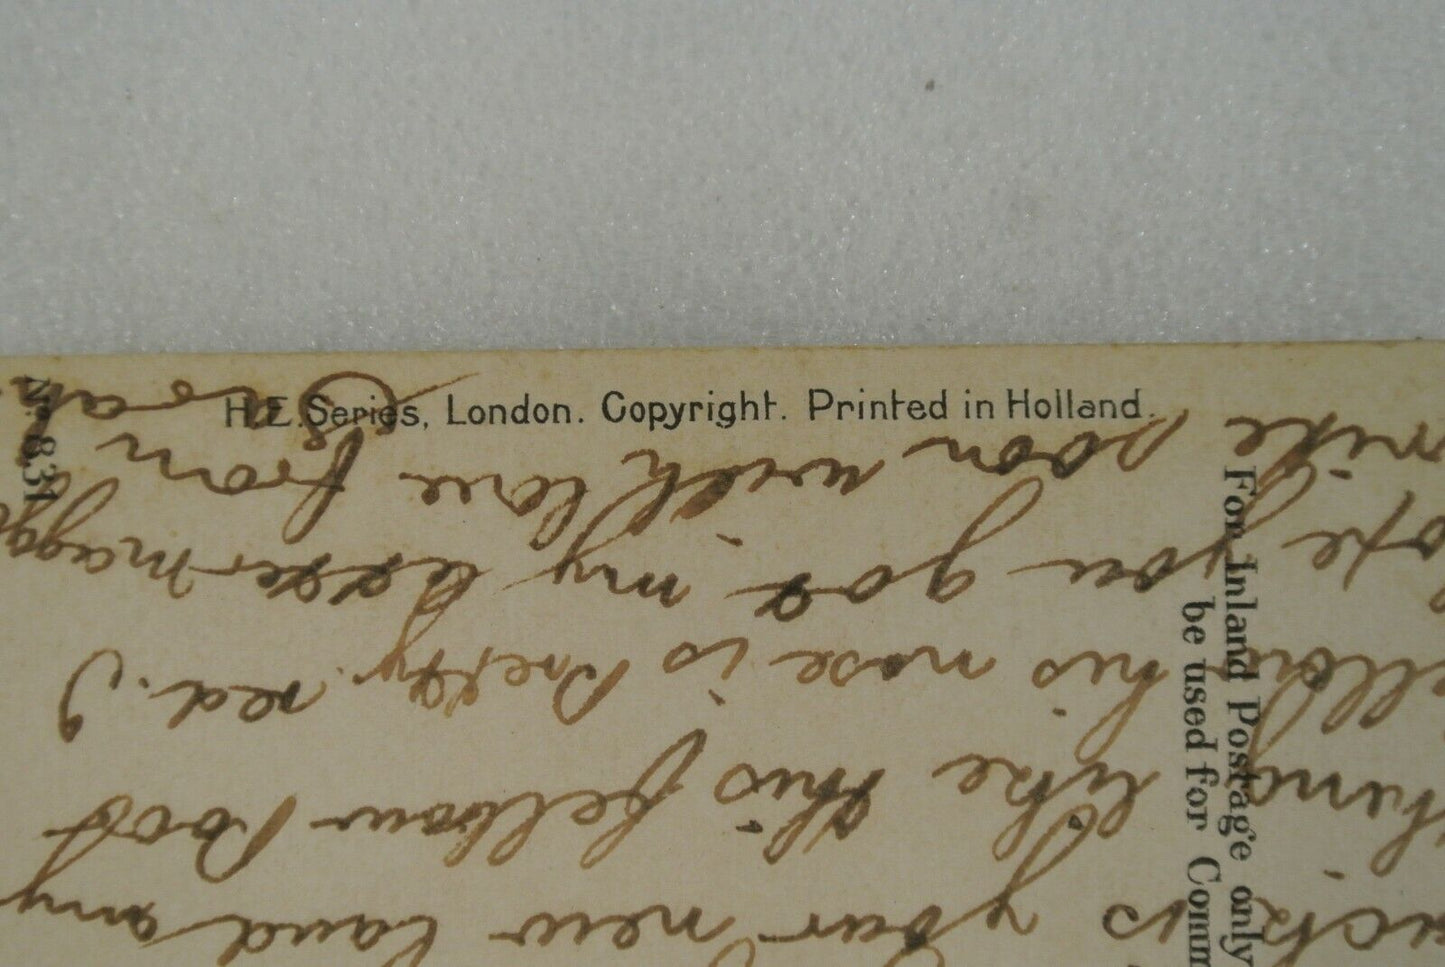 H.E. Series, London. Copyright. Printed in Holland.
No 831
For Inland Postage only
be used for Comm
is your new land any
thing like this fellow Poor
fellow his nose is Pretty red. I
hope you got my letter magg
mike soon with love from